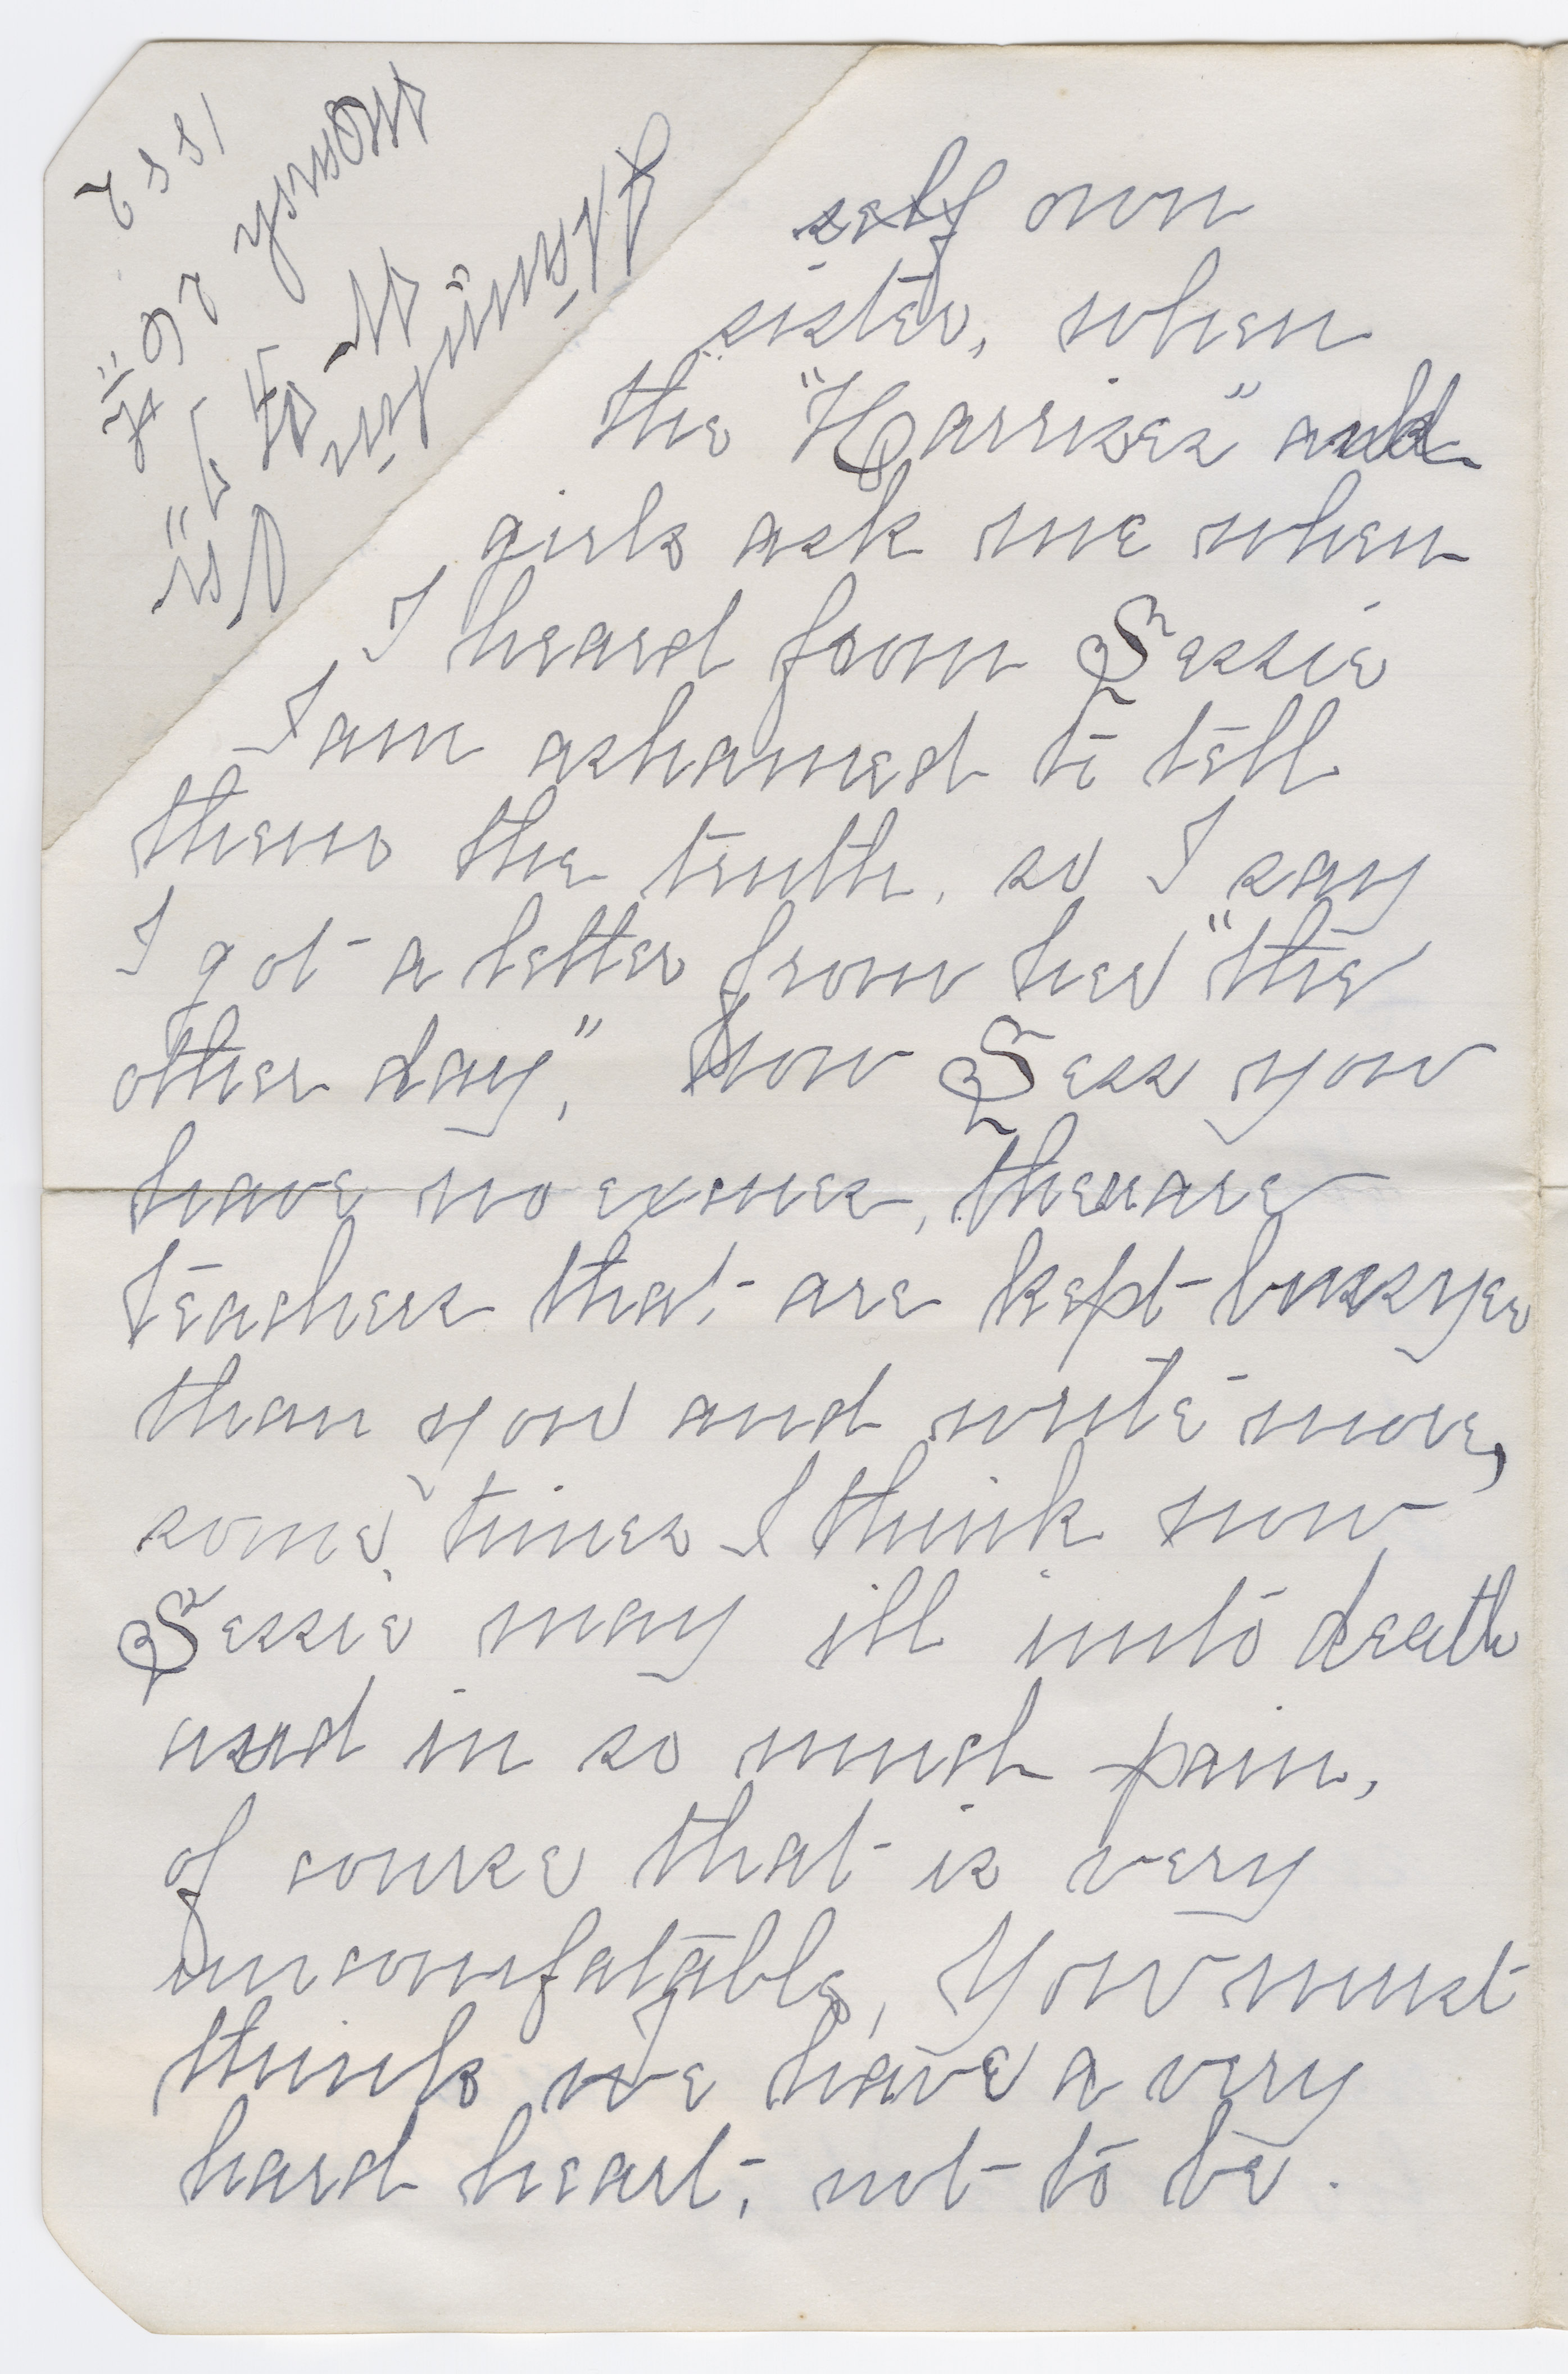 self own
sister, when
the "Harrises" and
girls ask me when
I heard from Bessie
I am ashamed to tell
them the truth, so I say
I got a letter from her "the
other day," Now Bess you
have no excuses, there are
teachers that are kept bussyer
than you and write more,
some, times I think now
Bessie may ill unto death
and in so much pain,
of course that is very
uncomfatable, You must
think we have a very
hard heart, not to be.